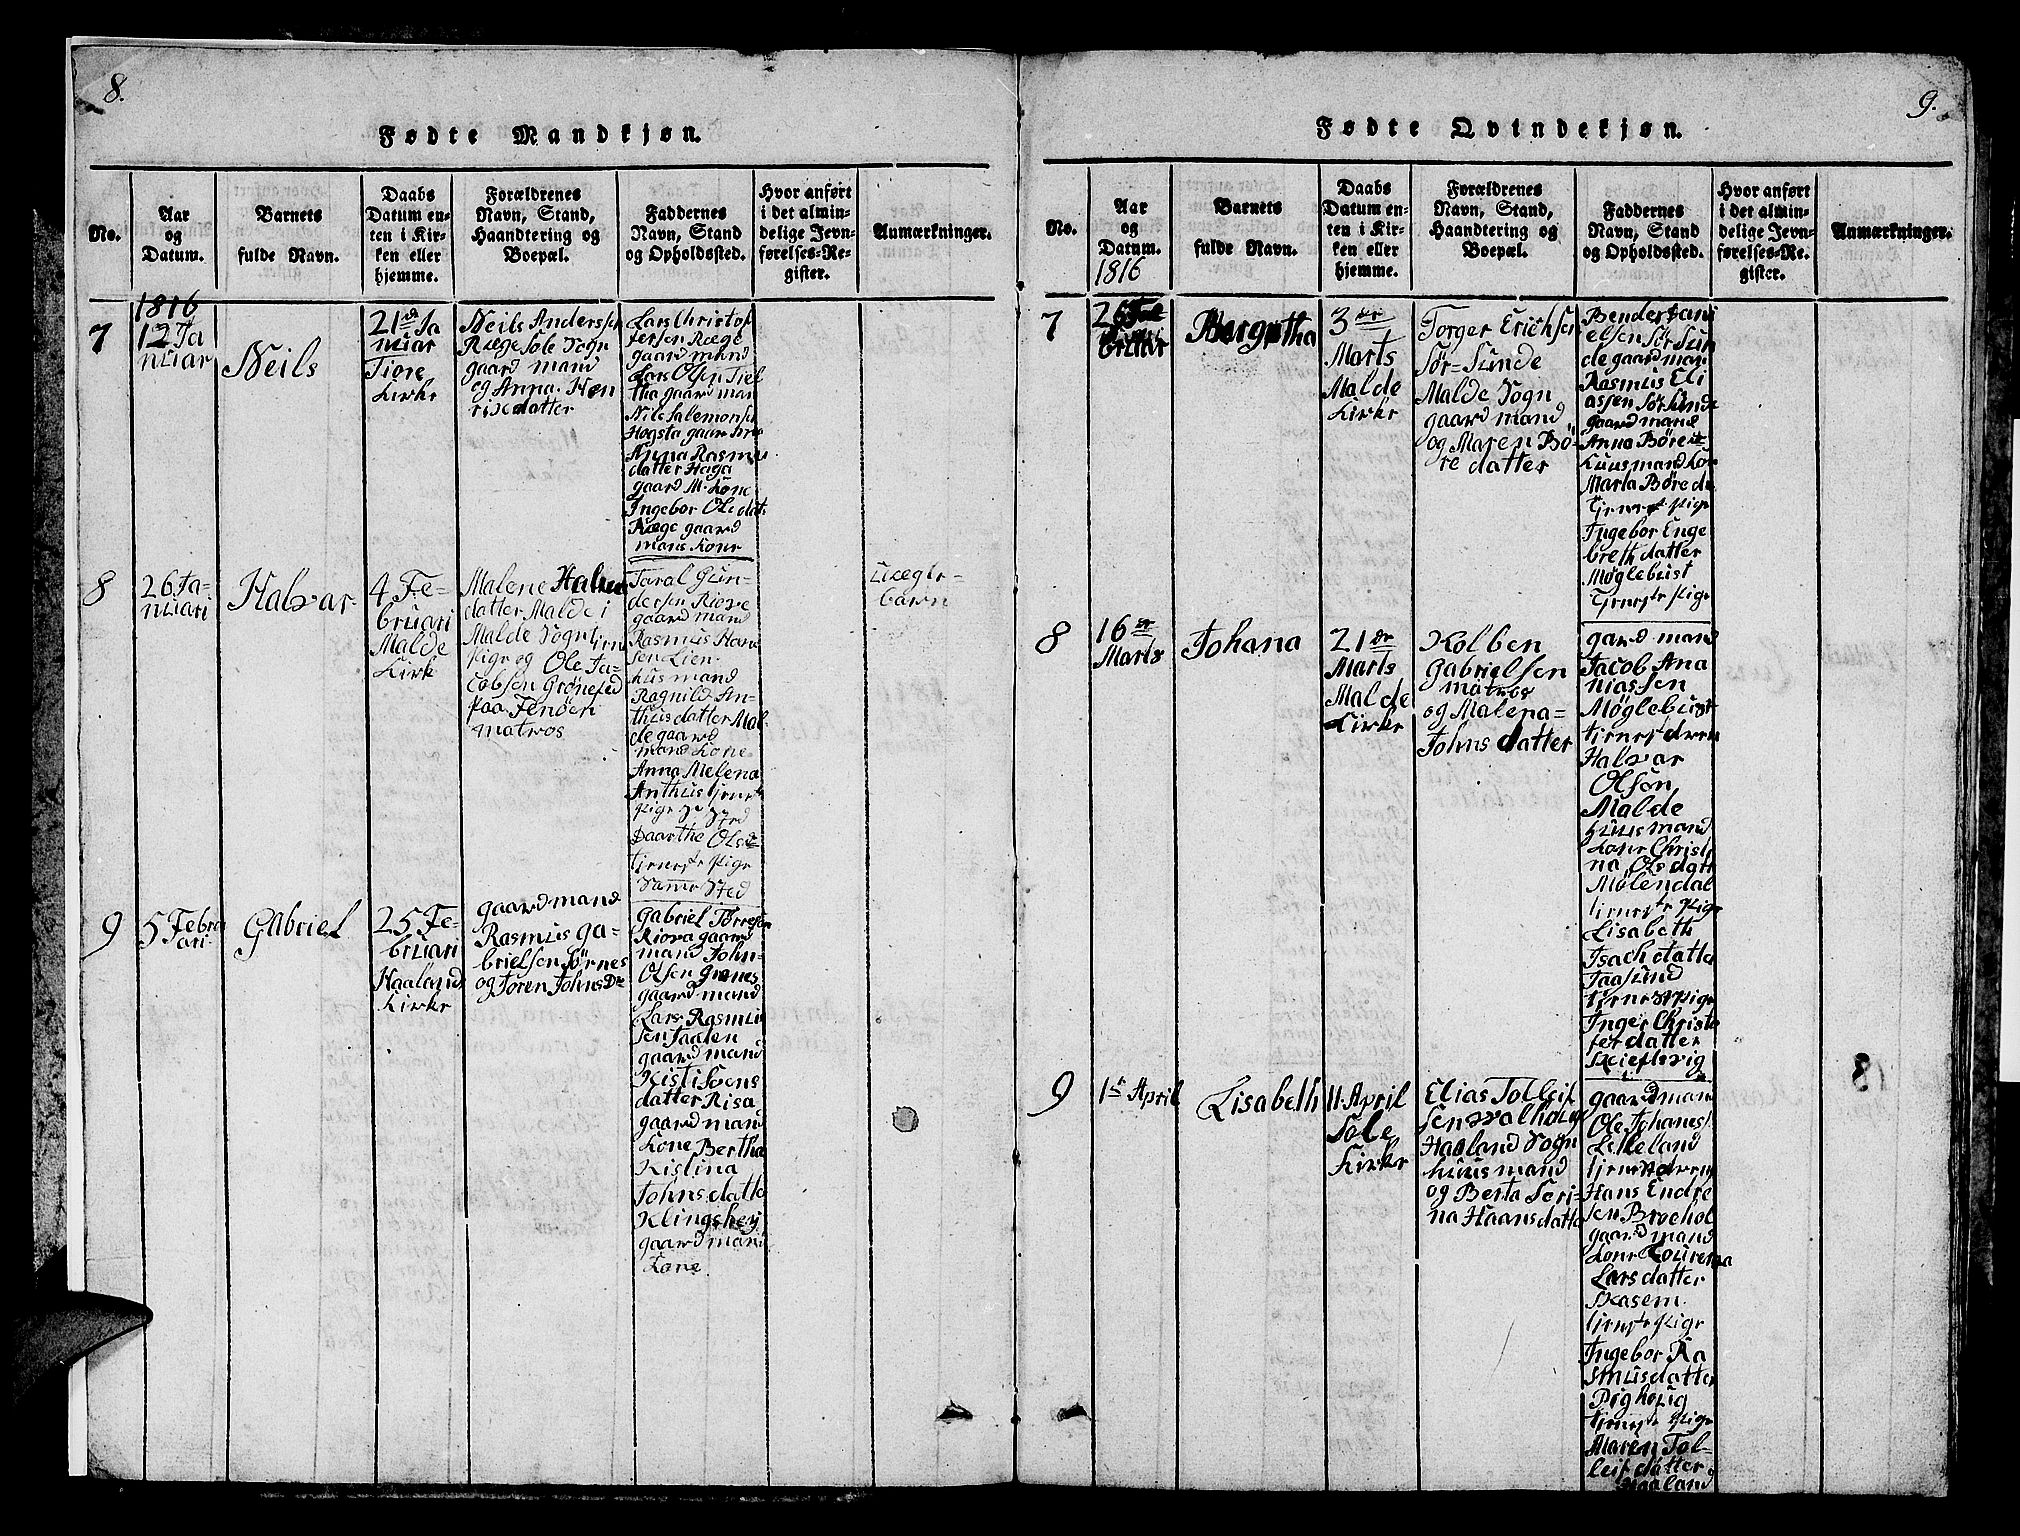 8.
Fødte Mandkjøn.
No.
Aar
og
Datum.
Barnets
fulde Navn.
Daabs
Datum en-
ten i Kir-
ken eller
hjemme.
Forældrenes
Navn, Stand,
Haandtering og
Boepæl.
Faddernes
Navn, Stand
og Opholdssted.
Hvor anført
i det almin-
delige Jevn-
førelses-Re-
gister.
Anmærkninger.
1816
7
12 Ja
nuar
Neils
21 Ja
nuar
Tiore
Kirke
Neils Anderssen
Ræge Sole Sogn
gaard mand
og Anna Hen
rixdatter
Lars Christof
fersen Ræge
gaard mand
Lars Olsen Tiel
tha gaard man
Nils Salemonsen
Hogsta gaar
Anna Rasmu
datter Haga
gaard M. Kone
Ingebor Ole dat.
Ræge gaard
mans Kone
8
26 Ja-
nuari
Halvar
4 Fe-
bruari
Malde
Kirk
Malene Halver
datter Malde i
Malde Sogn tjene
pige og Ole Ja-
cobsen Grönested
paa Jenöen
matros
Taral Gun-
dersen Riore
gaard mand
Rasmus Han
sen Lien
husmand
Ragnild An-
thusdatter Mal
de gaard
mand Kone
Anna Melena
Anthus tjeneste
pige Sted
Daarthe Olsd
tjeneste pige
Samme Sted
uægte-
barn
9
5 Febru
ari
Gabriel
25 Fe-
bruari
Haaland
Kirke
gaard mand
Rasmus Ga-
brielsen Sörnes
og Toren Johns Dr
Gabriel Törresen
Riora gaard
mand John
Olsen Grones
gaard mand
Lars Rasmus
sen Taalen
gaard mand
Kisti Soens
datter Risa
gaard man
Kone Bertha
Kistina
Johns datte
Klingshey
gaard mans
Kone
9.
Fødte Qvindekjøn.
No.
Aar
og
Datum.
1816
Barnets
fulde Navn.
Daabs
Datum en-
ten i Kir-
ken eller
hjemme.
Forældrenes
Navn, Stand,
Haandtering og
Boepæl.
Faddernes
Navn, Stand
og Opholdssted.
Hvor anført
i det almin-
delige Jevn-
førelses-Re-
gister.
Anmærkninger.
7
26 Fe
bruar
Bergitha
3
Marts
Malde
Kirke
Torger Erichsen
Sör-Sunde
Malde Sogn
gaard mand
og Maren Bö-
re datter
Bender Dani
elsen Sör Sun
de gaard man
Rasmus Eli
assen Sör Sunde
gaard mand
Anna Böre
huusmand Kon
Marta Böre d
tjeneste pige
Ingebor Enge
breth datter
Möglebust
tjeneste pige
8
16
Marts
Johana
21
Marts
Malde
Kirke
Kolben
Gabrielsen
matros
og Malena
Johns datter
gard mand
Jacob Ana
niassen
Möglebust
tjenestdren
Halvar
Olsön
Malde
huus mand
Kone Christi
na Ols datt
Mölendal
tjeneste pige
Lisabeth
Isach datte
Taasund
tjenestpige
Inger Christo
fer datter
Skieftsvig
9
1 April
Lisabeth
11 April
Sole
Kirke
Elias Tolleif
sen Walhoug
Haaland Sogn
huus mand
og Berta Seri-
na Haansdatte
gaard man
Ole Johanes
Lekeland
tjenestdreng
Hans Endre
sen Broehol
gaard mand
Kone Lourensa
Lars datter
Skasem
tjeneste pige
Ingebor Ra
smusdatter
Pighoug
tjeneste pige
Maren Tol-
leif datter
Haaland